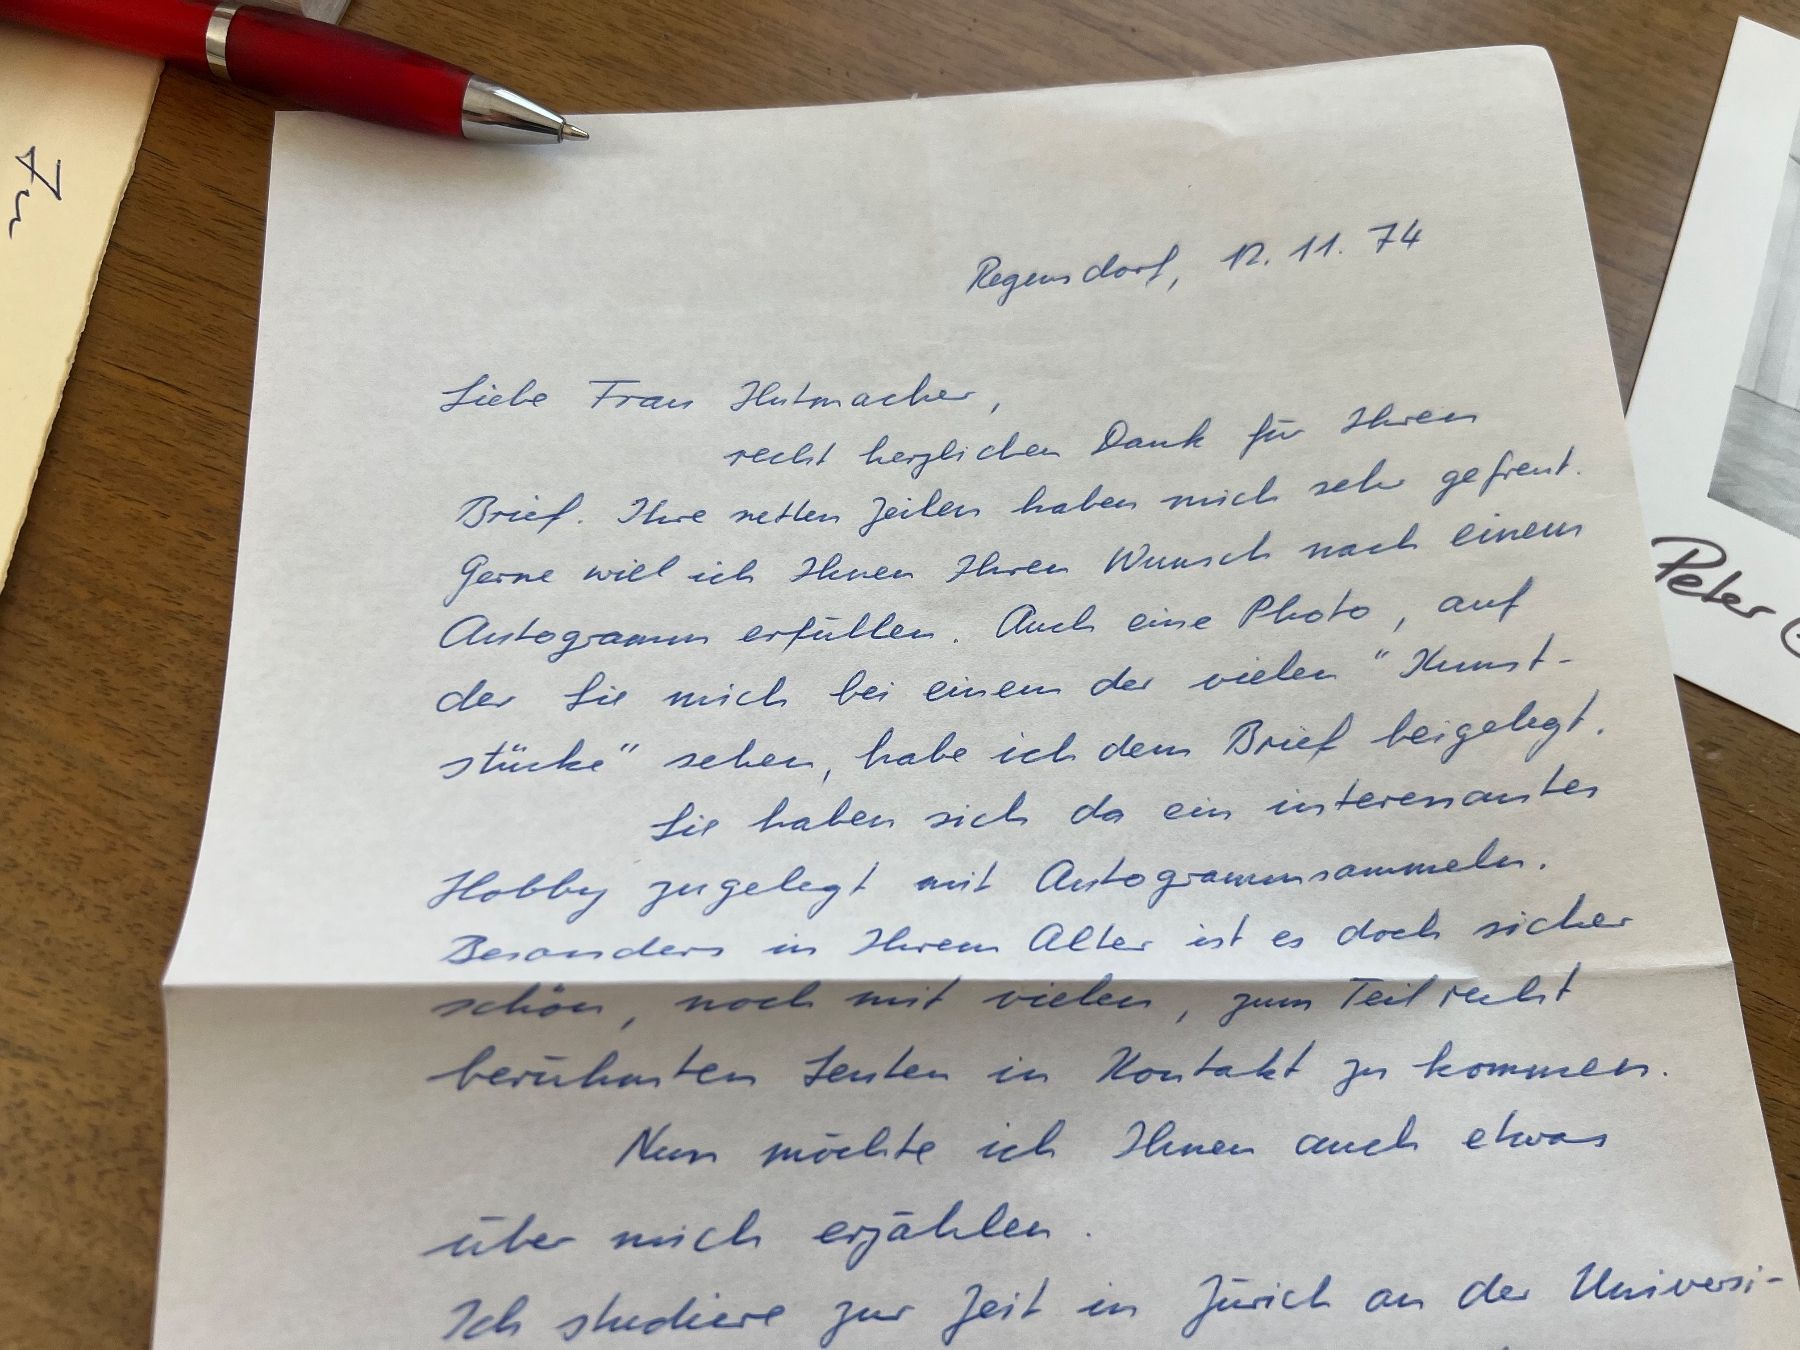 Regensdorf, 12. 11. 74
Liebe Frau Hutmacher,
recht herzlichen Dank für Ihren
Brief. Ihre netten Zeilen haben mich sehr gefreut.
Gerne will ich Ihnen Ihren Wunsch nach einem
Autogramm erfüllen. Auch eine Photo, auf
der Sie mich bei einem der vielen "Kunst-
stücke" sehen, habe ich dem Brief beigelegt.
Sie haben sich da ein interessantes
Hobby zugelegt mit Autogrammsammeln.
Besonders in Ihrem Alter ist es doch sicher
schön, noch mit vielen, zum Teil recht
berühmten Leuten in Kontakt zu kommen.
Nun möchte ich Ihnen auch etwas
über mich erzählen.
Ich studiere zur Zeit in Zürich an der Universi-
Peter